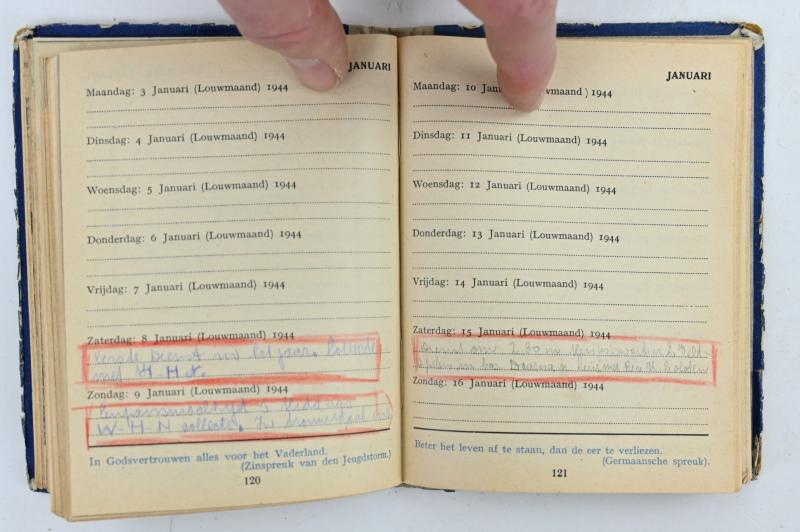 JANUARI
Maandag: 3 Januari (Louwmaand) 1944
Dinsdag: 4 Januari (Louwmaand) 1944
Woensdag: 5 Januari (Louwmaand) 1944
Donderdag: 6 Januari (Louwmaand) 1944
Vrijdag: 7 Januari (Louwmaand) 1944
Zaterdag: 8 Januari (Louwmaand) 1944
Eerste Dienst in het jaar. Collecte
met W-H-N.
Zondag: 9 Januari (Louwmaand) 1944
's Middags
W-H-N collecte. In
In Godsvertrouwen alles voor het Vaderland.
(Zinspreuk van den Jeugdstorm.)
120
JANUARI
Maandag: 10 maand) 1944
Dinsdag: 11 Januari (Louwmaand) 1944
Woensdag: 12 Januari (Louwmaand) 1944
Donderdag: 13 Januari (Louwmaand) 1944
Vrijdag: 14 Januari (Louwmaand) 1944
Zaterdag: 15 Januari (Louwmaand) 1944
Dienst om 2.30 in
in
Zondag: 16 Januari (Louwmaand) 1944
Beter het leven af te staan, dan de eer te verliezen.
(Germaansche spreuk).
121